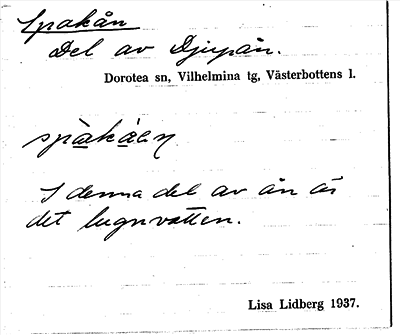 Spakån
Del av Djupån.
Dorotea sn, Vilhelmina tg, Västerbottens l.
I denna del av ån är
det lugnvatten.
Lisa Lidberg 1937.